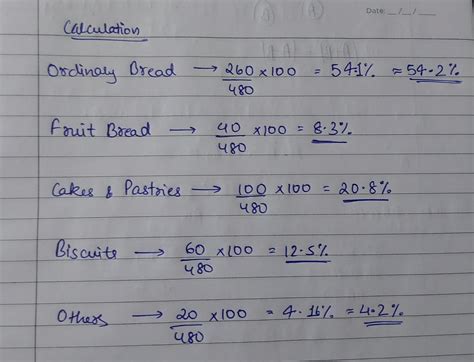 Date: __/__/____
Calculation
Ordinary Bread → 260/480 × 100 = 54.1% ≈ 54.2%
Fruit Bread → 40/480 × 100 = 8.3%
Cakes & Pastries → 100/480 × 100 = 20.8%
Biscuits → 60/480 × 100 = 12.5%
Others → 20/480 × 100 = 4.16% = 4.2%